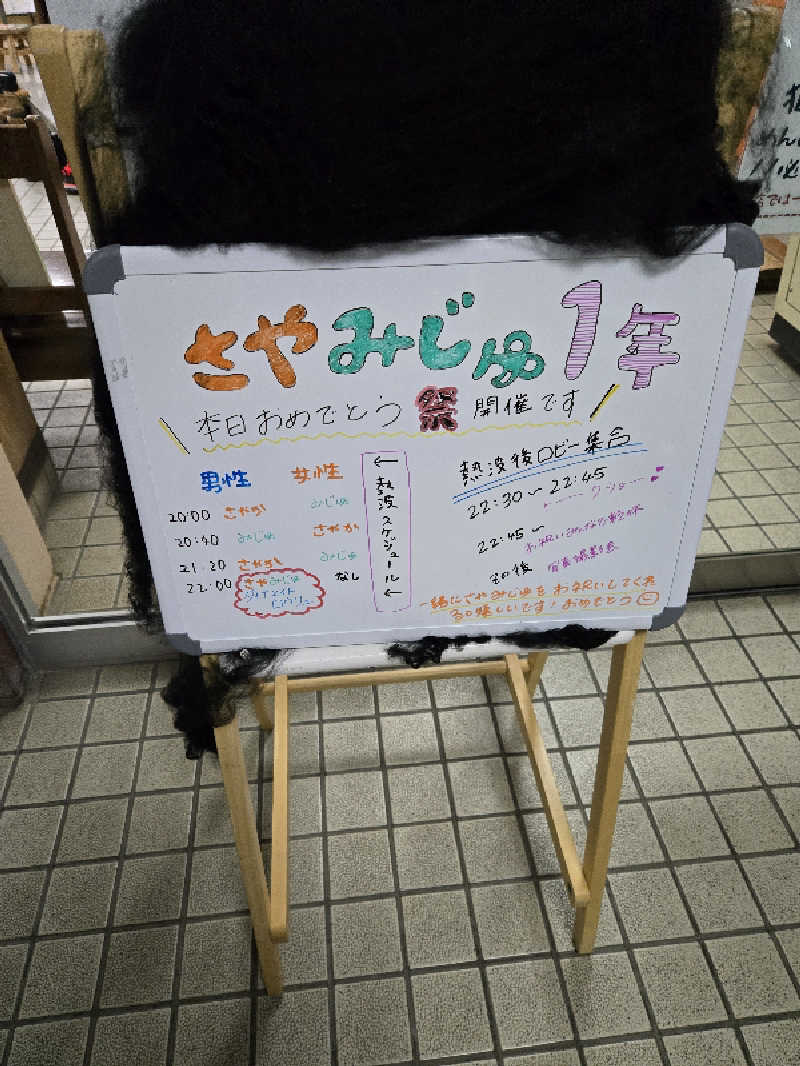 さやみじゅ1年
本日おめでとう祭開催です
男性 女性
20:00 さやか みじゅ
20:40 みじゅ さやか
21:20 さやか みじゅ
22:00 さやみじゅ なし
←熱波スケジュール←
熱波後ロビー集合
22:30〜22:45
22:45〜
その後 写真撮影会
一緒にさやみじゅをお祝いしてくれ
ると嬉しいです!おめでとう